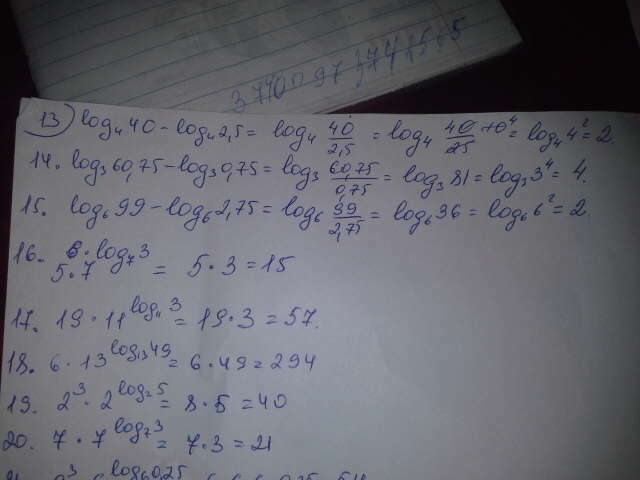 13) log₄40 - log₄2,5 = log₄ 40/2,5 = log₄ 40/25 · 10 = log₄ 4² = 2.
14. log₃60,75 - log₃0,75 = log₃ 60,75/0,75 = log₃ 81 = log₃ 3⁴ = 4.
15. log₆99 - log₆2,75 = log₆ 99/2,75 = log₆ 36 = log₆ 6² = 2.
16. 5·7^log₇3 = 5·3 = 15
17. 19·11^log₁₁3 = 19·3 = 57.
18. 6·13^log₁₃49 = 6·49 = 294
19. 2³·2^log₂5 = 8·5 = 40
20. 7·7^log₇3 = 7·3 = 21